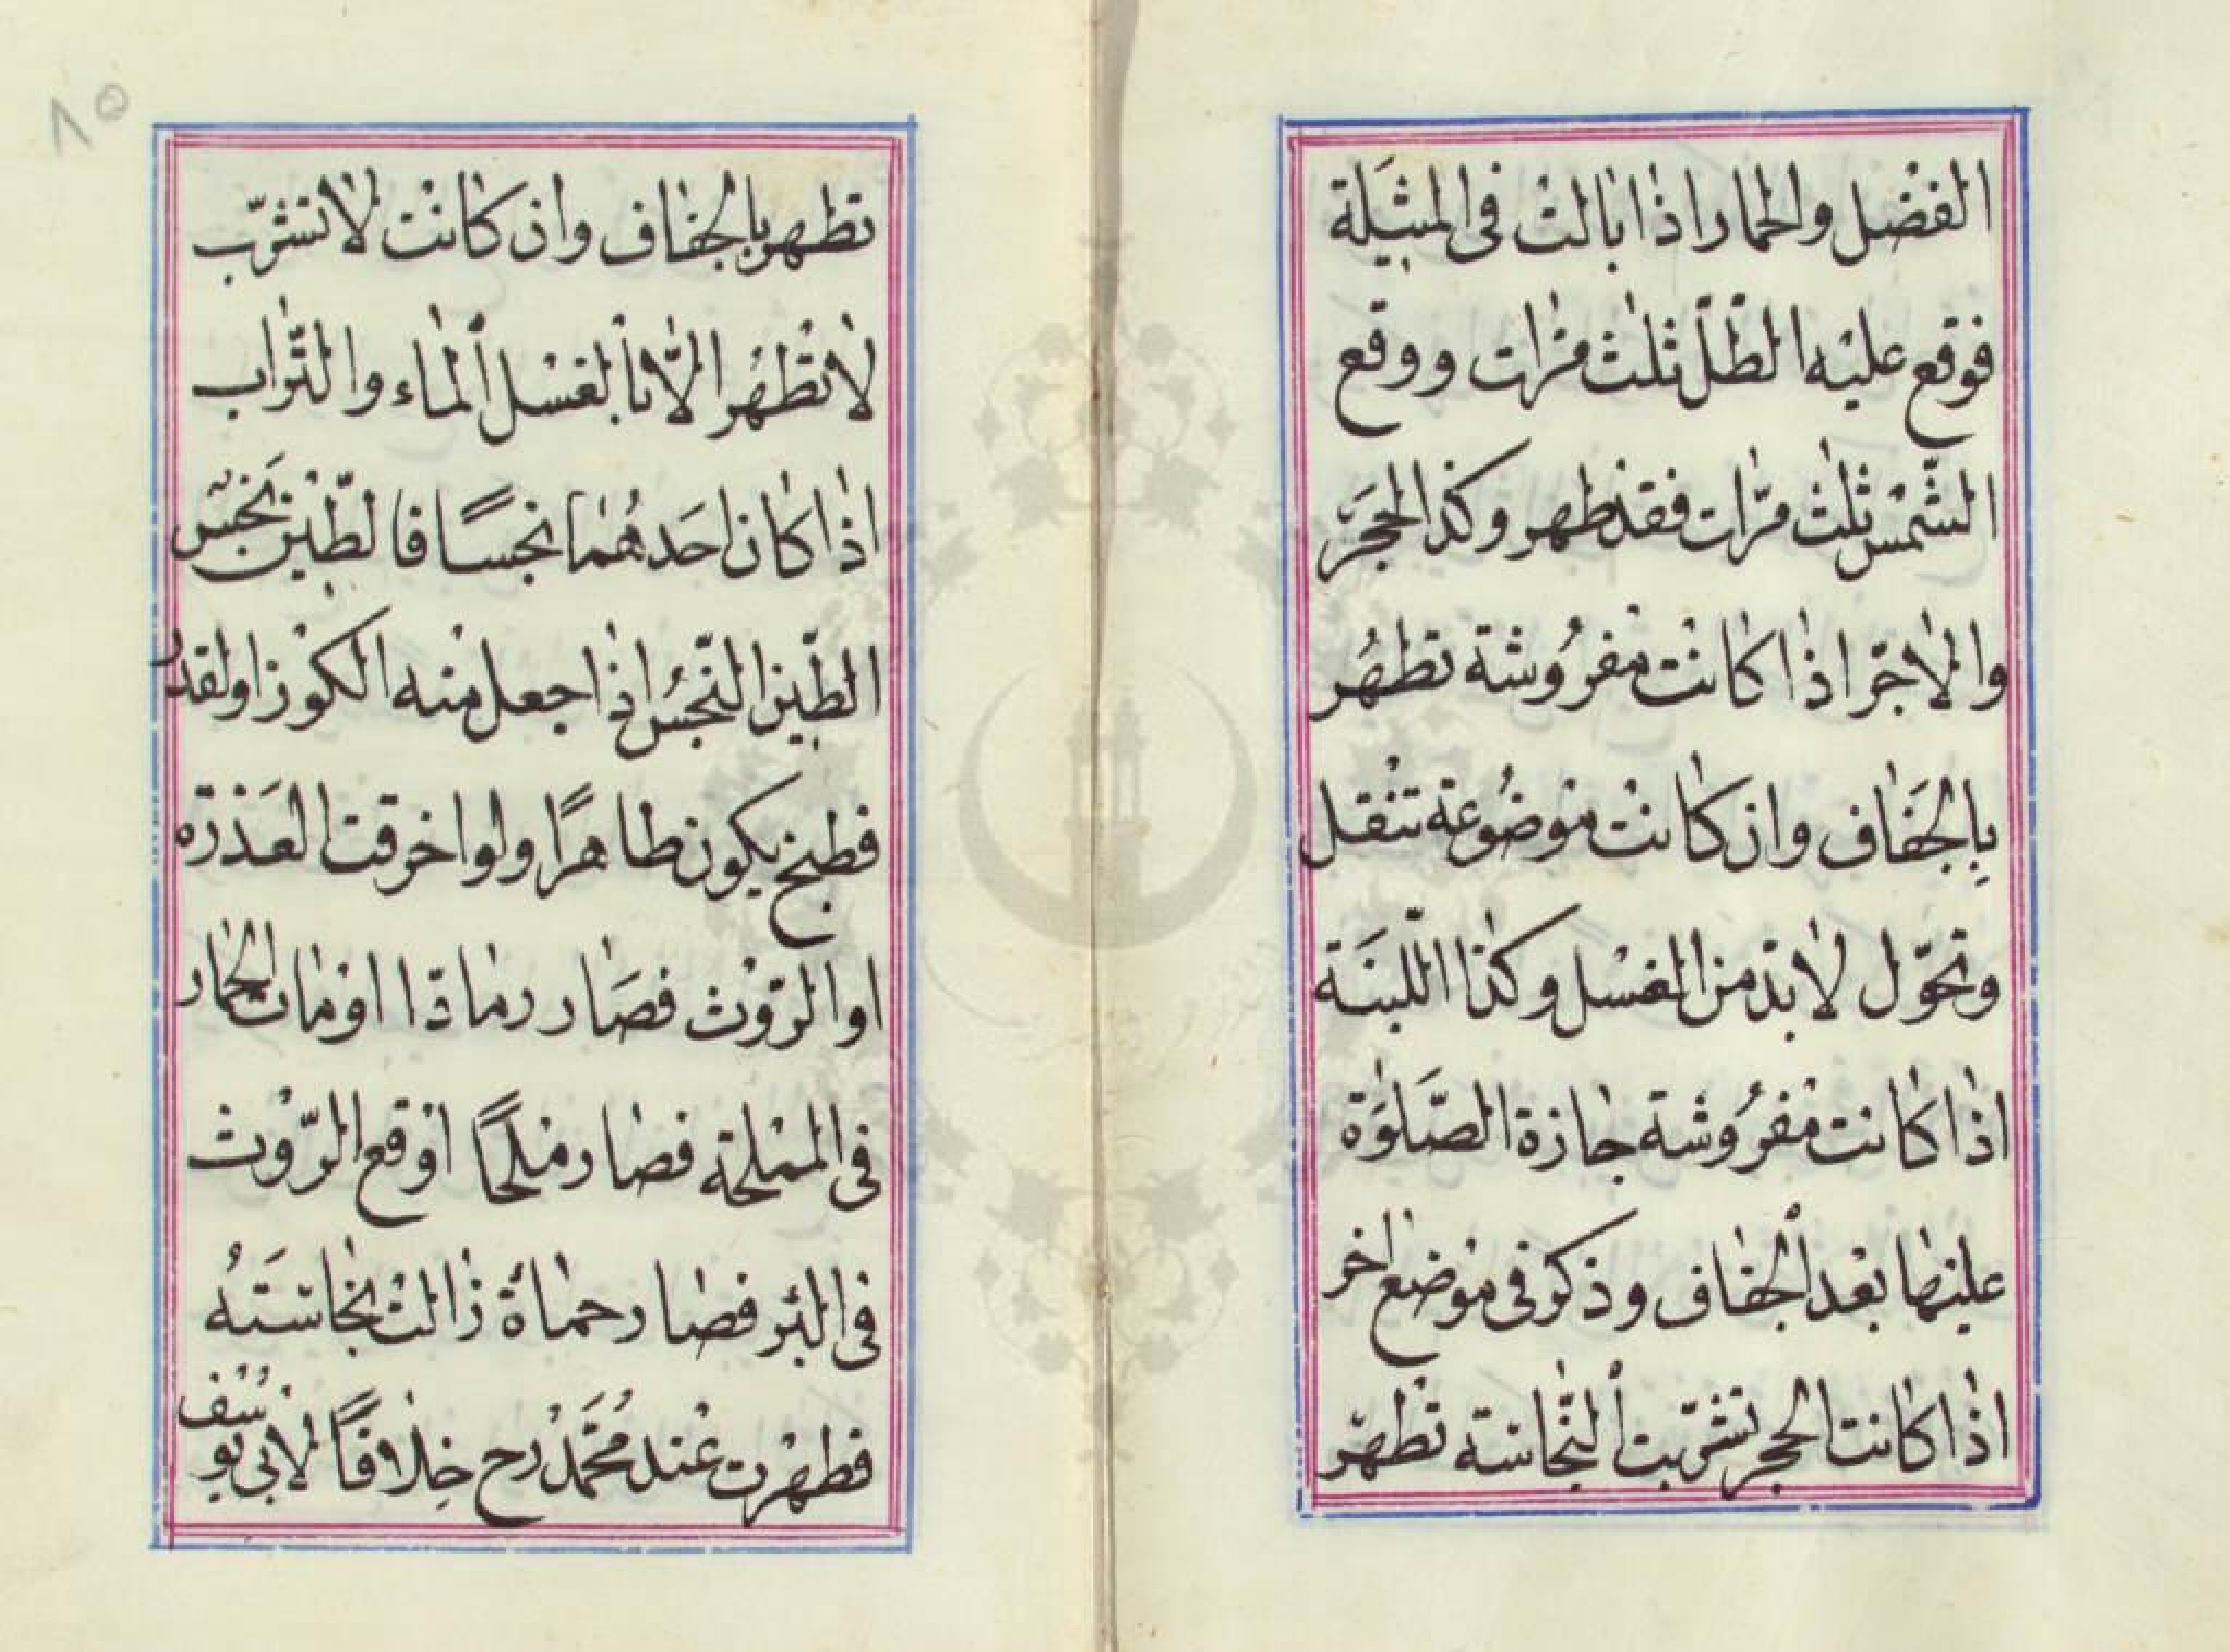 الفضل والحمار اذا بالت فى المثيلة
فوقع عليه الطّلّ ثلث مرّات ووقع
الشّمس ثلث مرّات فقد طهر وكذا الحجر
والاجرّ اذا كانت مفروشة تطهر
بالجفاف وان كانت موضوعة تنقل
وتحوّل لا بدّ من الغسل وكذا اللّبنة
اذا كانت مفروشة جازة الصّلوة
عليها بعد الجفاف وذكر فى موضع اخر
اذا كانت الحجر تشرّبت النّجاسة تطهر
٨٥
تطهر بالجفاف وان كانت لا تشرّب
لا تطهر الّا بالغسل الماء والتّراب
اذا كان احدهما نجسا فالطّين نجس
الطّين النّجس اذا جعل منه الكوز اولقدر
فطبخ يكون طاهرًا ولو احرقت العذرة
او الرّوث فصار رمادًا او مات الحمار
فى المملحة فصار ملحًا او وقع الرّوث
فى البئر فصار حماة زالت نجاسته
فطهرت عند محمّد رح خلافًا لابى يوسف